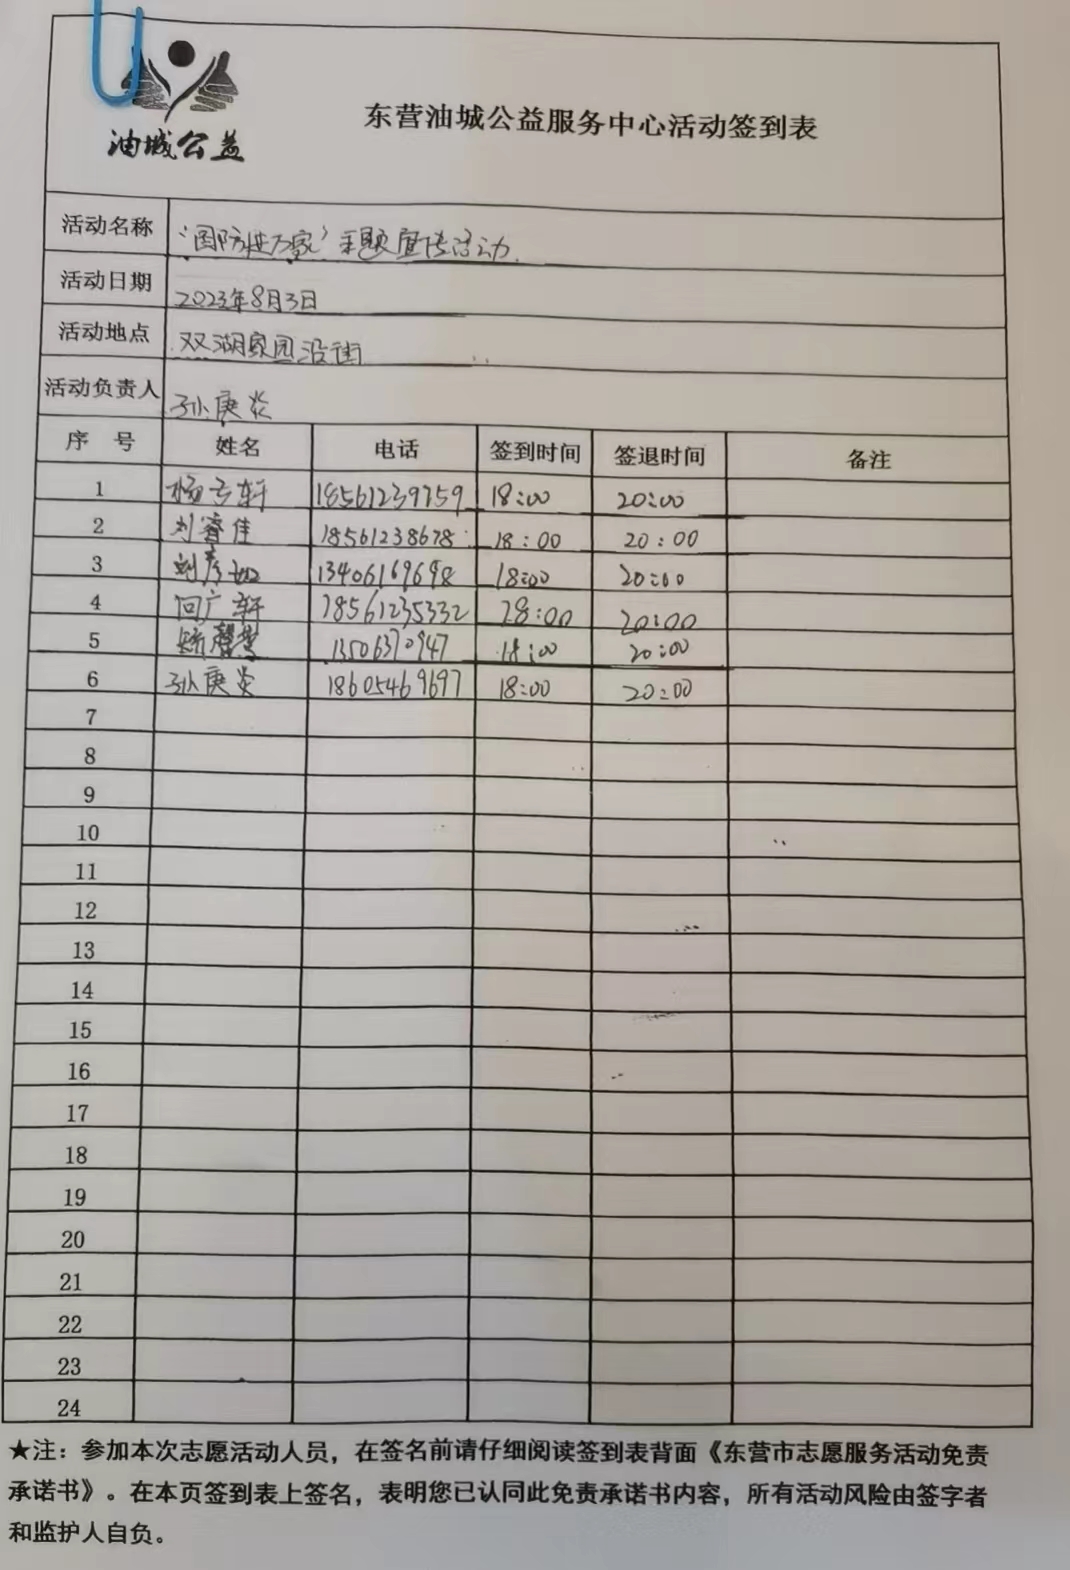 油城公益
东营油城公益服务中心活动签到表
活动名称 “国防进万家”主题宣传活动
活动日期 2023年8月3日
活动地点 双湖家园沿街
活动负责人 孙庚炎
序 号 姓名 电话 签到时间 签退时间 备注
1 杨 轩 18561239759 18:00 20:00
2 刘睿佳 18561238678 18:00 20:00
3 刘彦 13406169698 18:00 20:00
4 回广轩 18561235332 18:00 20:00
5 13506370947 18:00 20:00
6 孙庚炎 18605469697 18:00 20:00
7
8
9
10
11
12
13
14
15
16
17
18
19
20
21
22
23
24
★注：参加本次志愿活动人员，在签名前请仔细阅读签到表背面《东营市志愿服务活动免责
承诺书》。在本页签到表上签名，表明您已认同此免责承诺书内容，所有活动风险由签字者
和监护人自负。